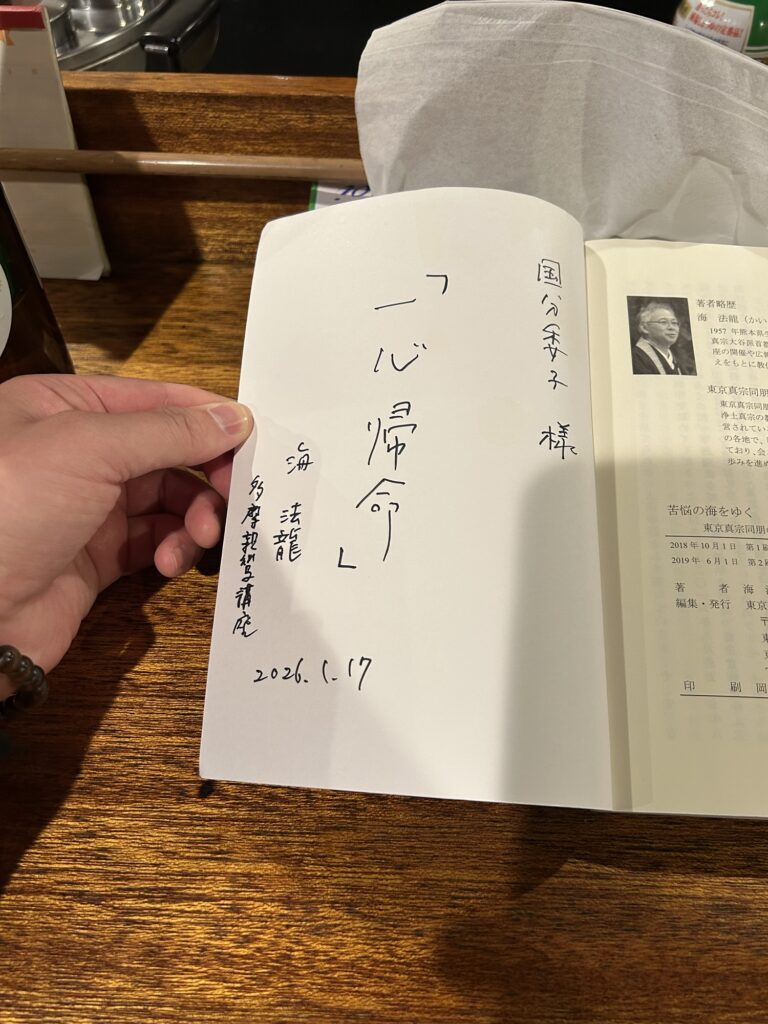 国分委子 様
「一心帰命」
海 法龍
多摩親鸞講座
2026.1.17
著者略歴
海 法龍(かい
1957年熊本県
真宗大谷派首都
座の開催や広
えをもとに教
東京真宗同朋
東京真宗同朋
浄土真宗の
営されてい
の各地で、
ており、会
歩みを進め
苦悩の海をゆく
東京真宗同朋の
2018年10月1日 第1刷
2019年 6月1日 第2
著 者 海
編集・発行 東京
〒
印 刷 岡